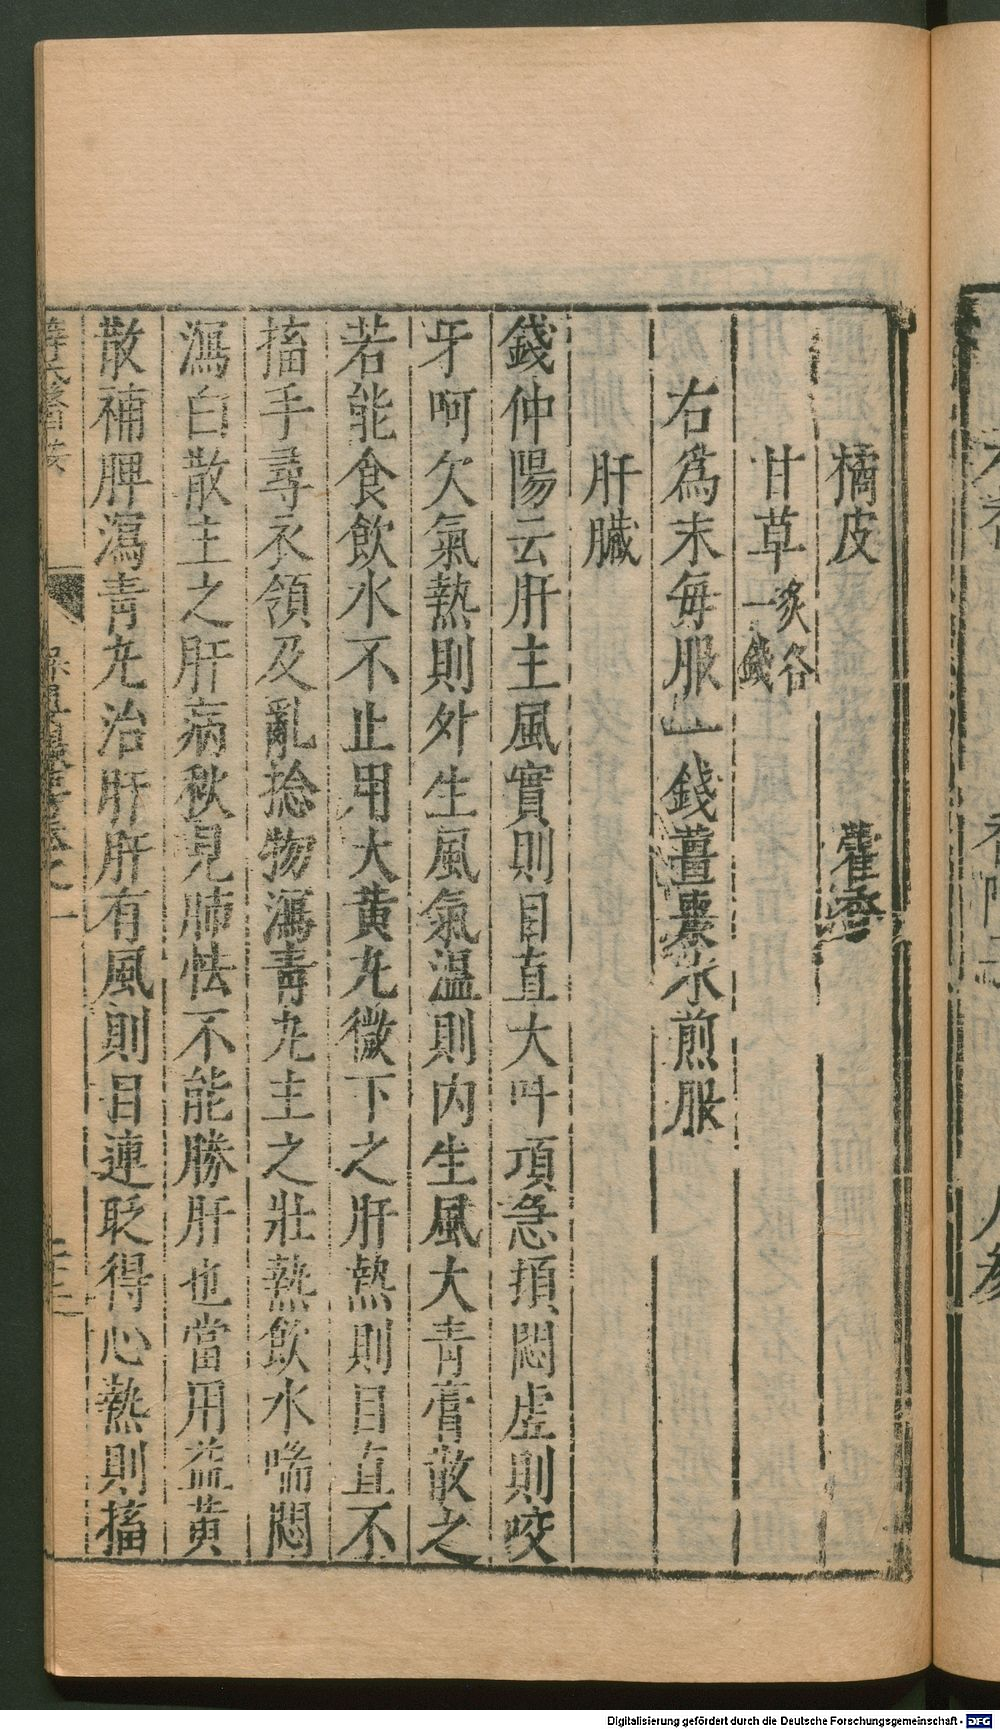 橘皮　藿香
甘草炙各一錢
右爲末每服一錢薑棗水煎服
肝臟
錢仲陽云肝主風實則目直大呌項急頓悶虛則咬
牙呵欠氣熱則外生風氣溫則内生風大青膏散之
若能食飲水不止用大黄丸微下之肝熱則目直不
搐手尋衣領及亂捻物瀉青丸主之壯熱飲水喘悶
瀉白散主之肝病秋見肺怯不能勝肝也當用益黄
散補脾瀉青丸治肝肝有風則目連眨得心熱則搐
保嬰撮要卷之一
Digitalisierung gefördert durch die Deutsche Forschungsgemeinschaft - DFG